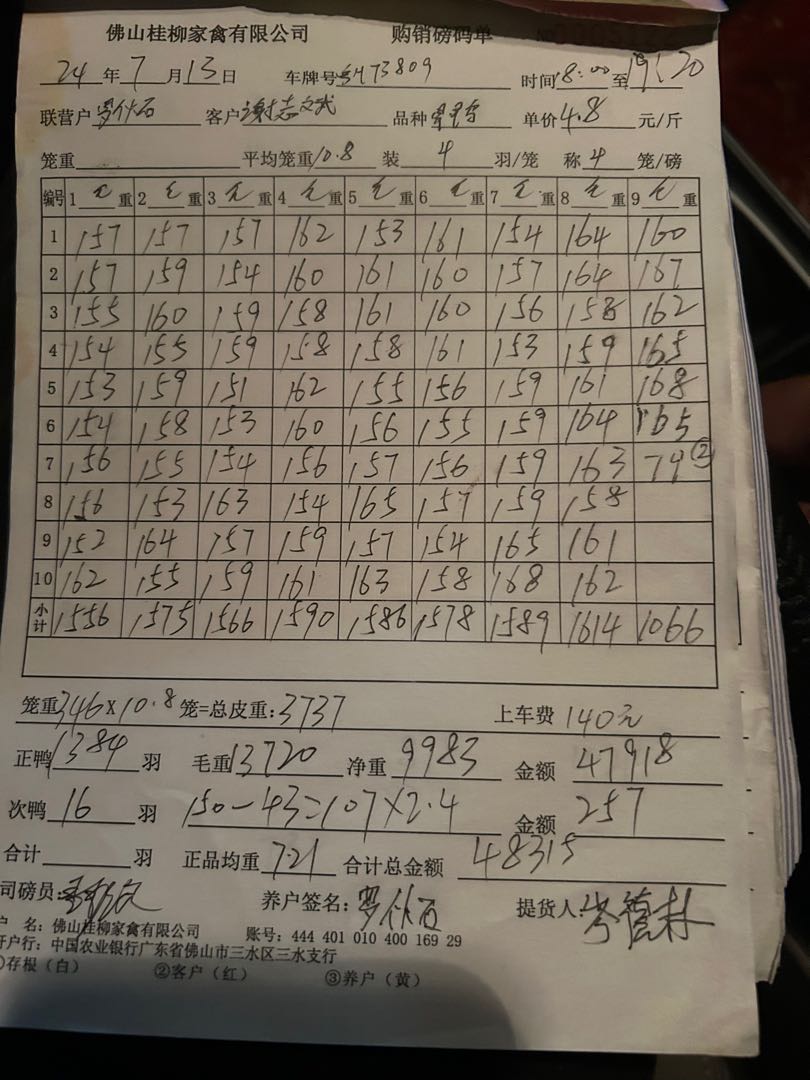 佛山桂柳家禽有限公司 购销磅码单 №
24 年 7 月 13 日 车牌号 H73809 时间 8:00 至 19:20
联营户 罗伙石 客户 谢志文武 品种 单价 4.8 元/斤
笼重 平均笼重 10.8 装 4 羽/笼 称 4 笼/磅
编号 1 毛重 2 毛重 3 毛重 4 毛重 5 毛重 6 毛重 7 毛重 8 毛重 9 毛重
1 157 157 157 162 153 161 154 164 160
2 157 159 154 160 161 160 157 164 167
3 155 160 159 158 161 160 156 158 162
4 154 155 159 158 158 161 153 159 165
5 153 159 151 162 155 156 159 161 168
6 154 158 153 160 156 155 159 164 165
7 156 155 154 156 157 156 159 163 79②
8 156 153 163 154 165 157 159 158
9 152 164 157 159 157 154 165 161
10 162 155 159 161 163 158 168 162
小计 1556 1575 1566 1590 1586 1578 1589 1614 1066
笼重 346×10.8 笼=总皮重: 3737 上车费 140元
正鸭 1384 羽 毛重 13720 净重 9983 金额 47918
次鸭 16 羽 150-43=107×2.4 金额 257
合计 羽 正品均重 7.21 合计总金额 48315
司磅员: 养户签名: 罗伙石 提货人: 岑德林
户 名: 佛山桂柳家禽有限公司 账号: 444 401 010 400 169 29
开户行: 中国农业银行广东省佛山市三水区三水支行
①存根(白) ②客户(红) ③养户(黄)